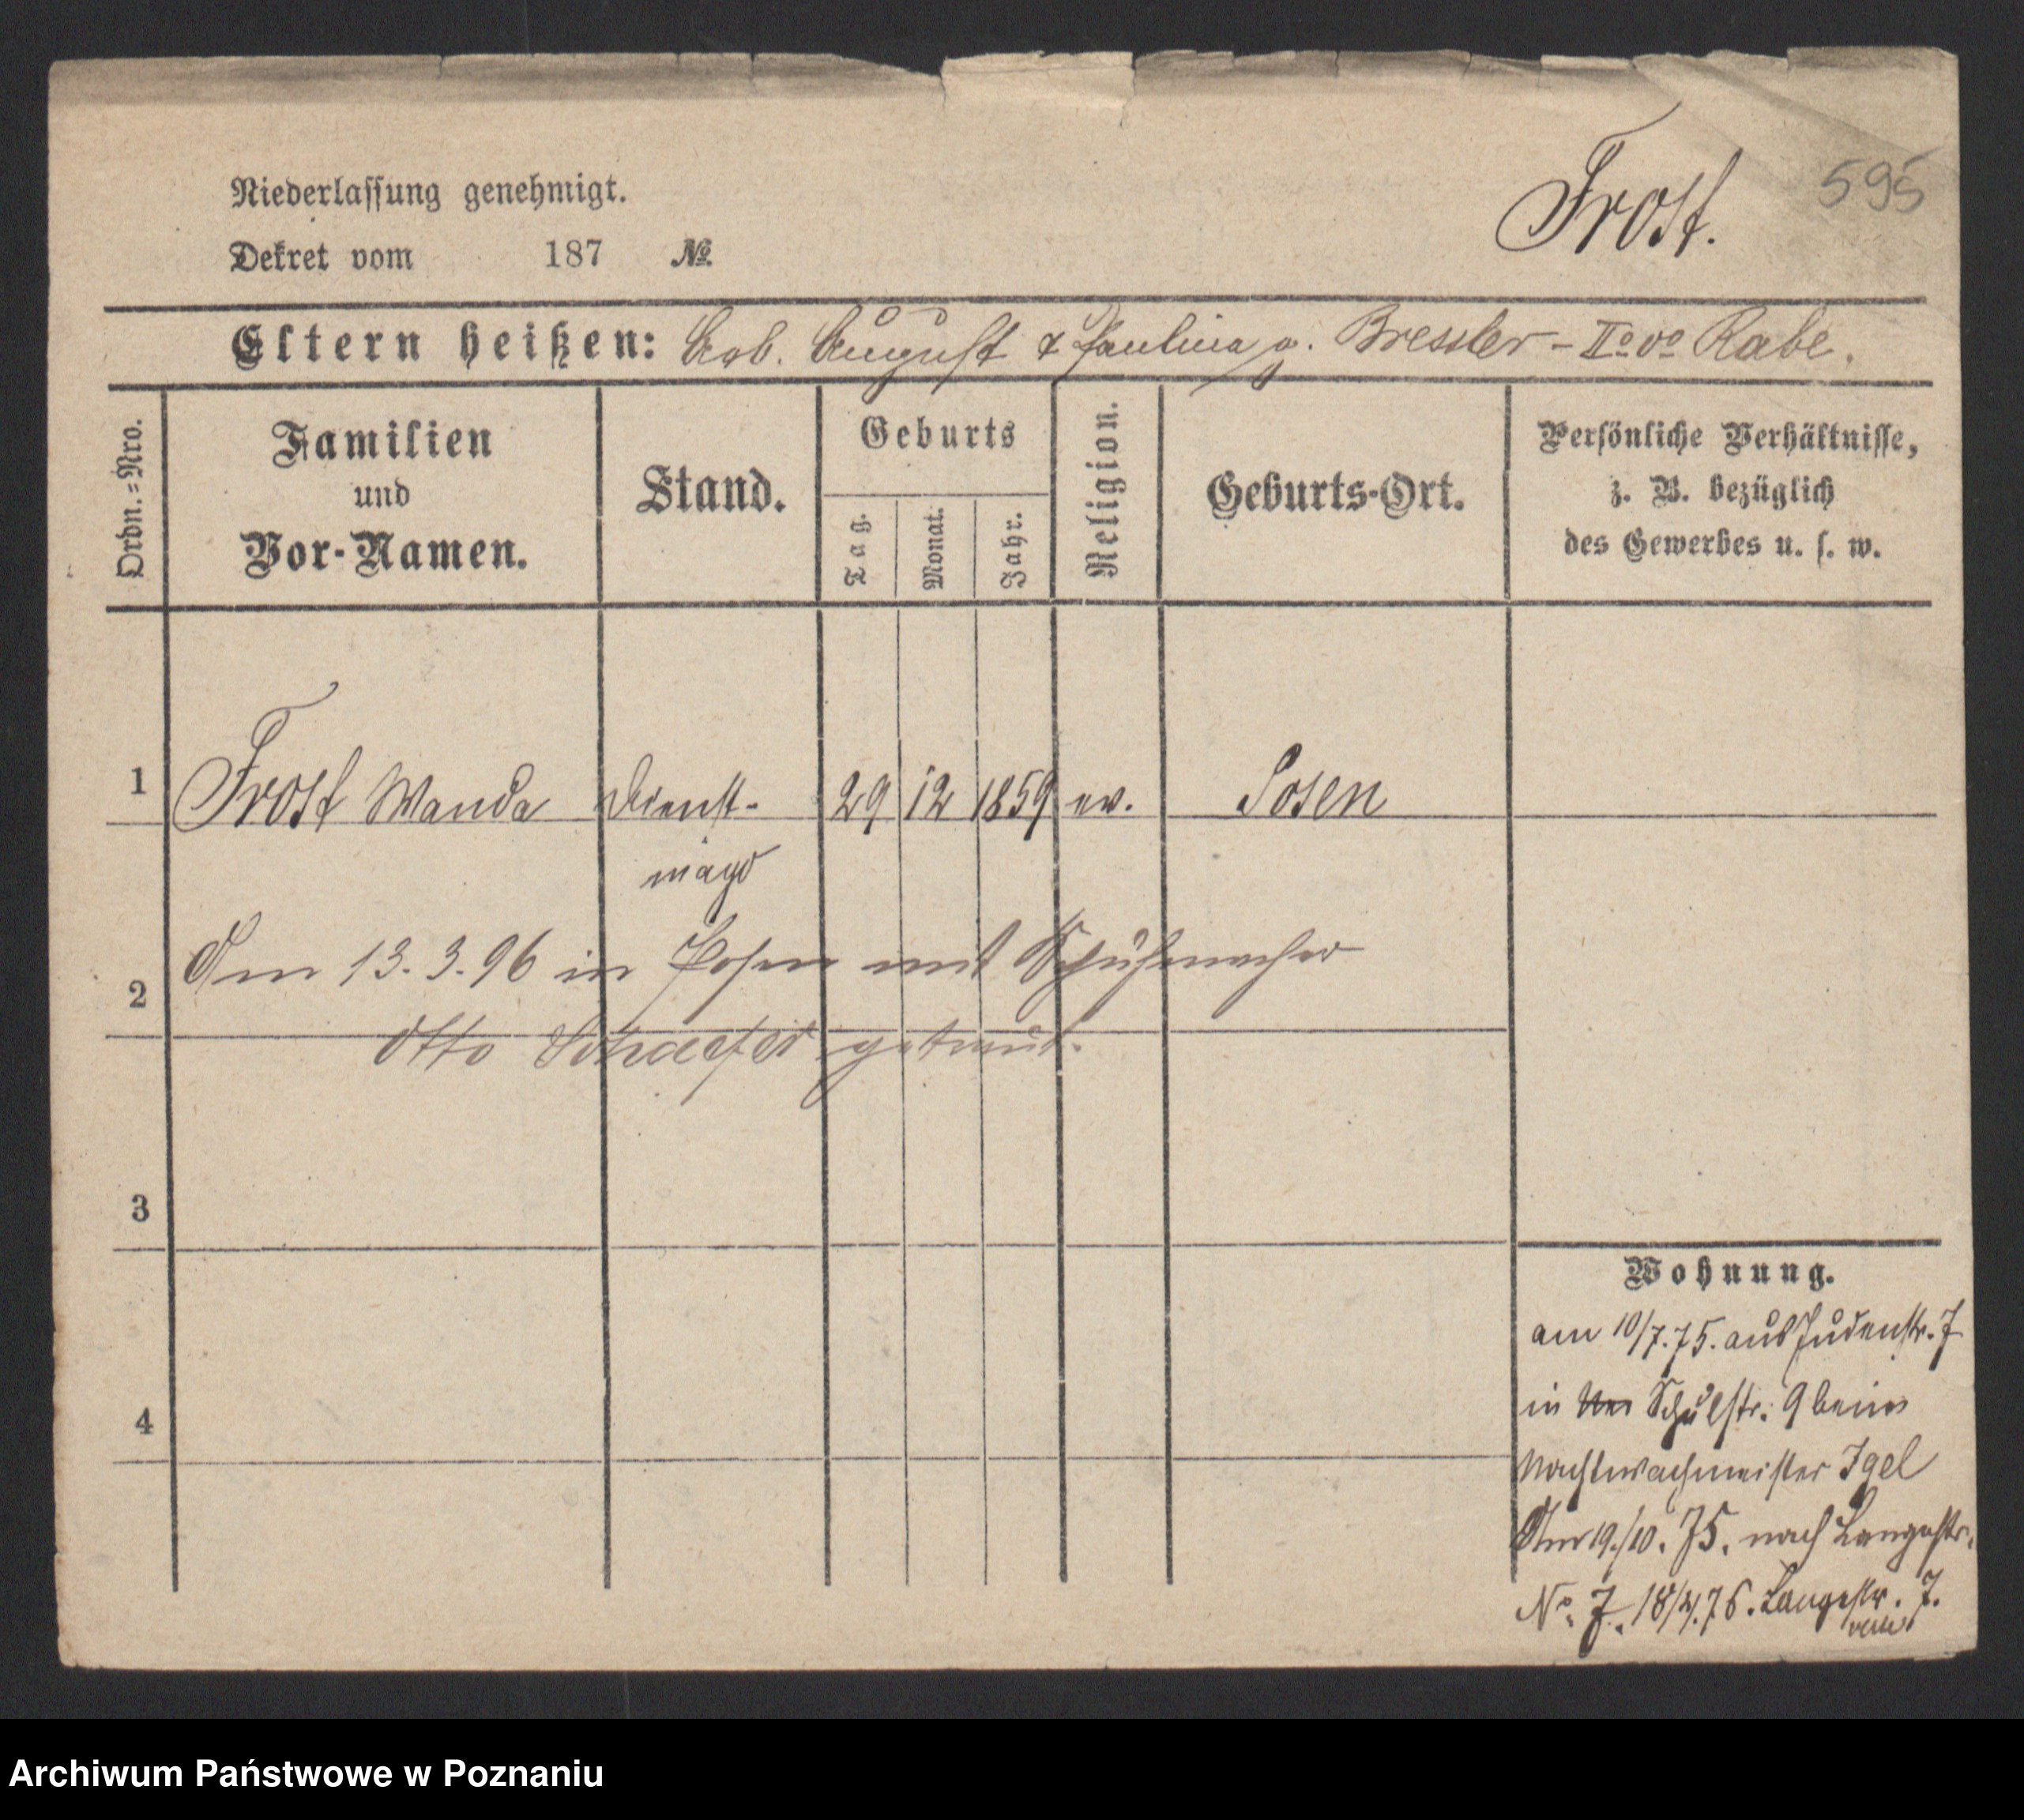 Frost. 595
Niederlassung genehmigt.
Dekret vom 187 №
Eltern heißen: Arb. August & Paulina g. Bressler – II° v° Rabe.
Ordn.=Nro.
Familien
und
Vor-Namen.
Stand.
Geburts
Tag.
Monat.
Jahr.
Religion.
Geburts-Ort.
Persönliche Verhältnisse,
z. B. bezüglich
des Gewerbes u. s. w.
1 Frost Wanda Dienst- 29 12 1859 ev. Posen
magd
Am 13.3.96 in Posen mit Schuhmacher
2
Otto Schaefer getraut.
3
Wohnung.
am 10/7.75. aus Judenstr. 7
in Schulstr. 9 beim
4
Nachtwachmeister Igel
Am 19./10. 75. nach Langestr.
No. 7. 18/4.76. Langestr. 7.
Archiwum Państwowe w Poznaniu